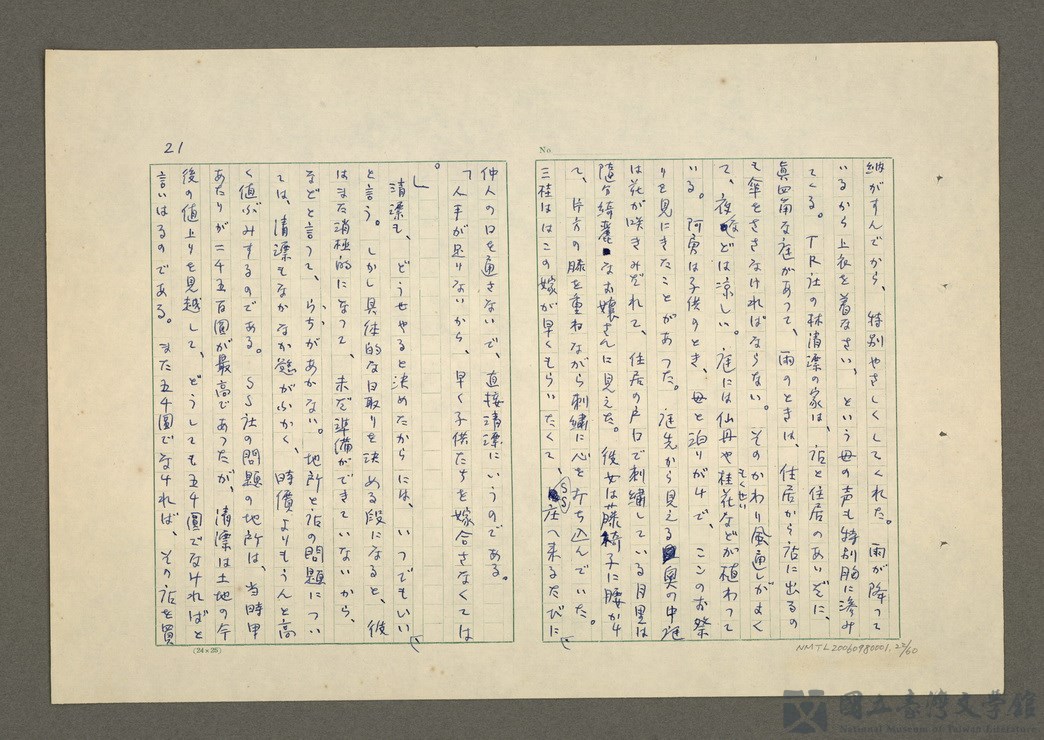 No
納がすんでから、特別やさしくしてくれた。雨が降って
いるから上衣を着なさい、という母の声も特別胸に滲み
てくる。TR社の林清漂の家は、店と住居のあいだに、
眞四角な庭があって、雨のときは、住居から店に出るの
も傘をささなければならない。そのかわり風通しがよく
て、夜などは凉しい。庭には仙丹や桂花などが植わって
もくせい
いる。阿勇は子供のとき、母と泊りがけで、ここのお祭
りを見にきたことがあった。庭先から見える奥の中庭
は花が咲きみだれて、住居の戸口で刺繍している月里は
随分綺麗なお嬢さんに見えた。彼女は藤椅子に腰かけ
て、片方の膝を重ねながら刺繍に心を打ち込んでいた。
三桂はこの嫁が早くもらいたくて、SS庄へ来るたびに
仲人の口を通さないで、直接清漂にいうのである。
「人手が足りないから、早く子供たちを嫁合さなくては
。」
清漂も、どうせやると決めたからには、いつでもいい
と言う。しかし具体的な日取りを決める段になると、彼
はまた消極的になって、未だ準備ができていないから、
などと言って、らちがあかない。地所と店の問題につい
ては、清漂もなかなか慾がふかく、時價よりもうんと高
く値ぶみするのである。SS社の問題の地所は、当時甲
あたりが二千五百圓が最高であったが、清漂は土地の今
後の値上りを見越して、どうしても五千圓でなければと
言いはるのである。また五千圓でなければ、その店を買
21
(24×25)
NMTL20060980001.22/60
國立臺灣文學館
National Museum of Taiwan Literature